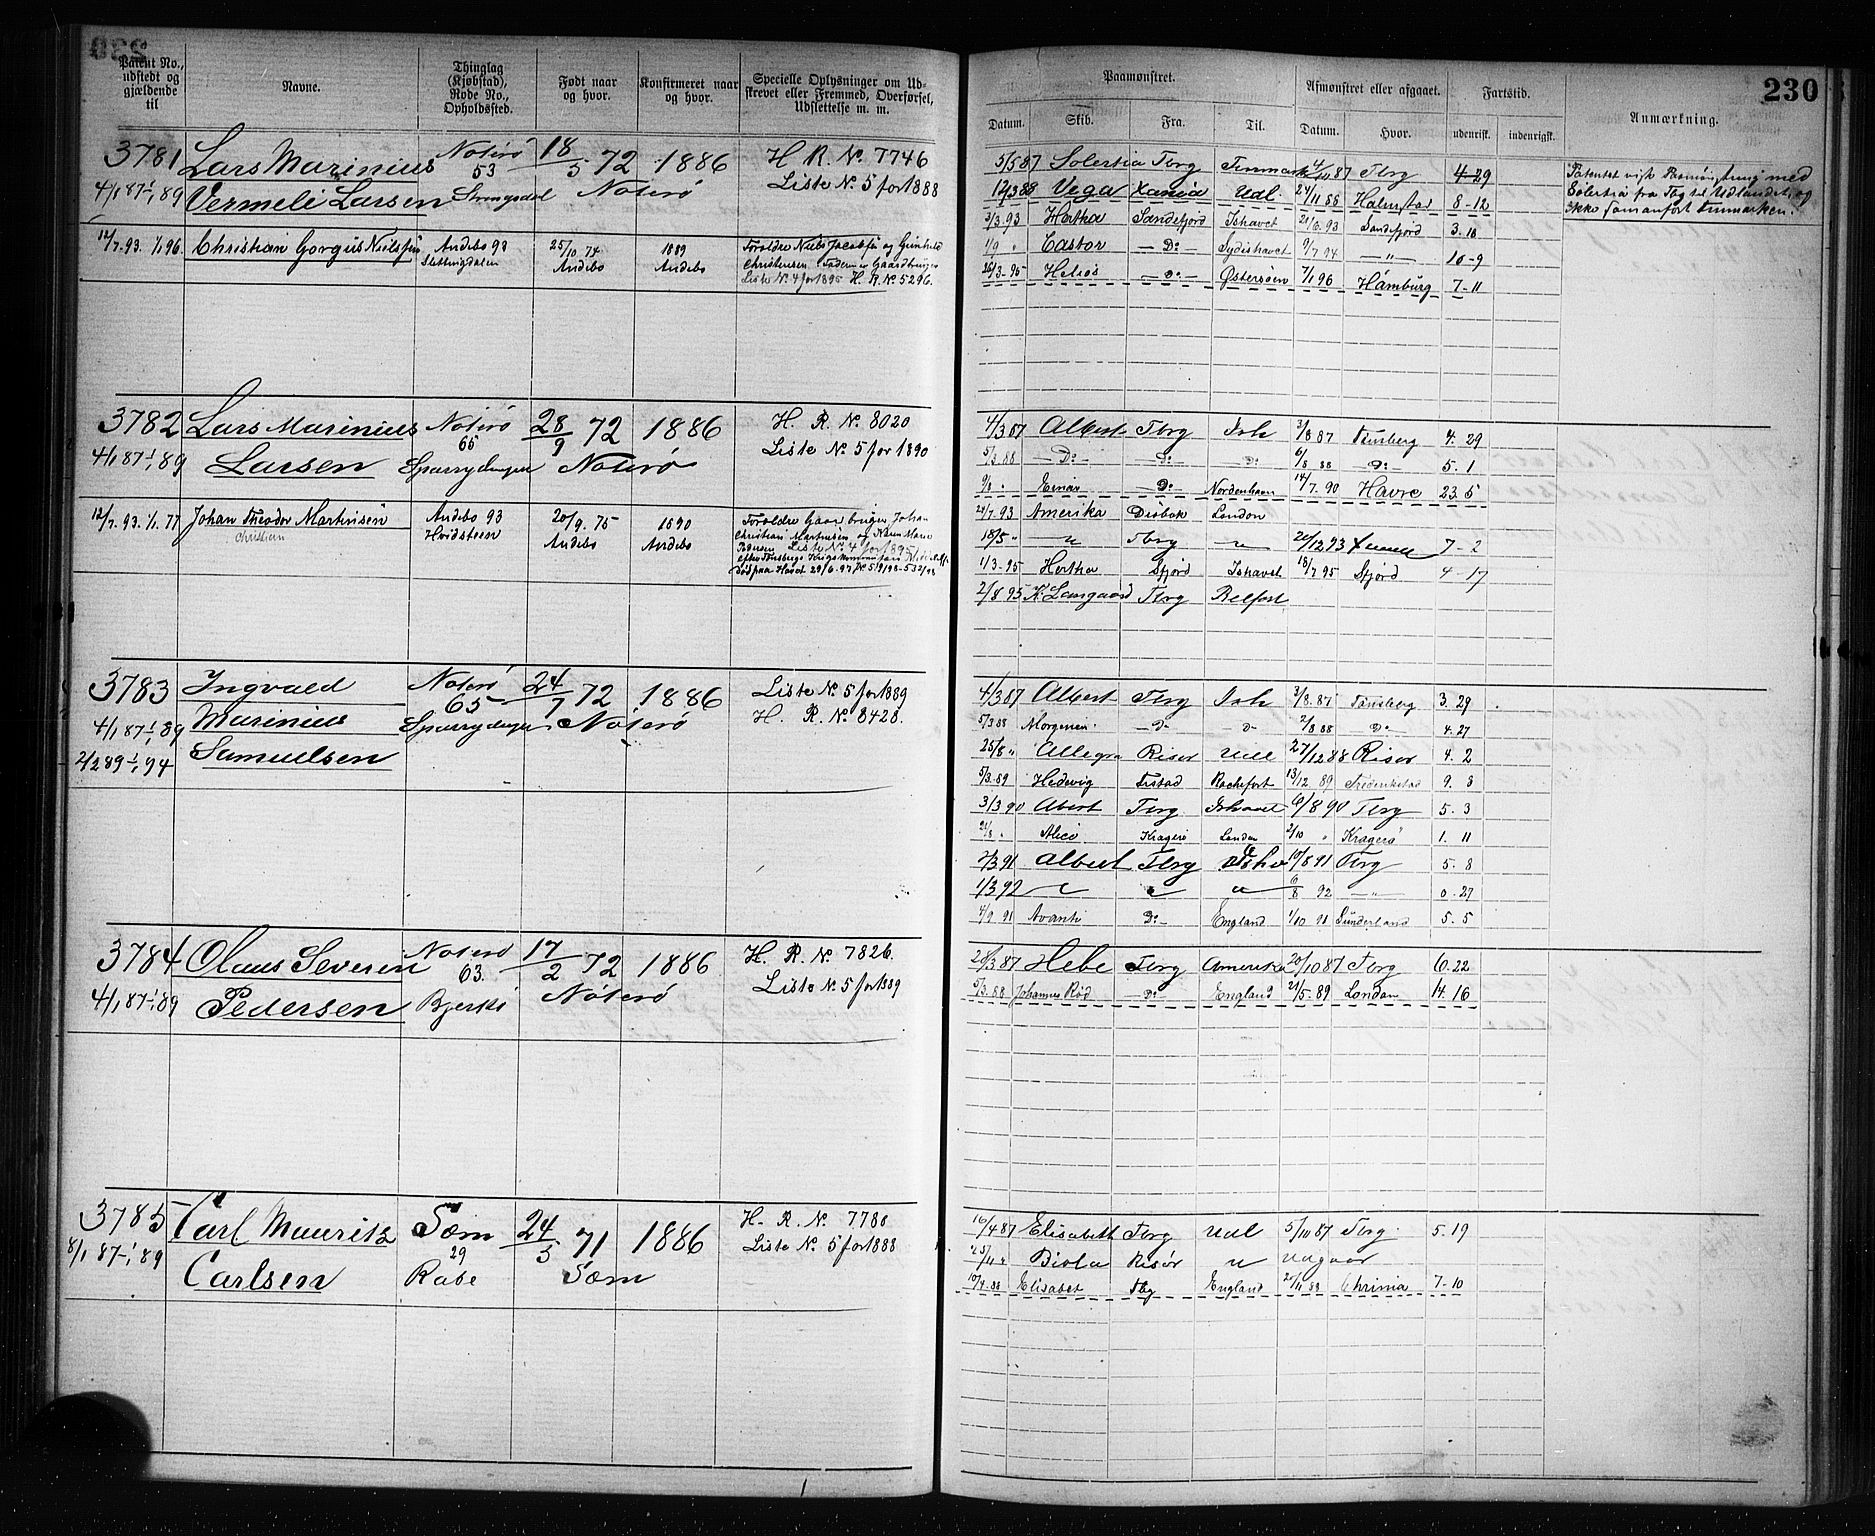 230
Patent No., udstedt og gjældende til
Navne.
Thinglag (Kjøbstad), Rode No., Opholdssted.
Født naar og hvor.
Konfirmeret naar og hvor.
Specielle Oplysninger om Udskrevet eller Fremmed, Overførsel, Udslettelse m. m.
Paamønstret.
Afmønstret eller afgaaet.
Fartstid.
Anmærkning.
Datum. Skib. Fra. Til. Datum. Hvor. udenrigsk. indenrigsk.
3781 Lars Marinius Noterö 18/5 72 1886 H. R. No. 7746
4/1 87-1/1 89 Vermeli Larsen 53 Noterö Liste No. 5 for 1888
12/7. 93. 1/1 96. Christian Gorgus Nielsen Andebo 93 25/10. 74 1889 Forældre Niels Jacobsen og Gunhild
Slettingdalen Andebo Andebo Christensen
Liste No. 4 for 1895 H. R. No. 5296.
5/5 87 Solertia Tbrg 87 Tbrg 4-29
12/3 88 Vega Xania Udl 24/11 88 Halmstad 8-12
3/3. 93 Hertha Sandefjord Ishavet 93 Sandefjord 3. 18
1/9 " Castor - Do - Sydishavet 9/7 94 - " - 10-9
26/3-95 Helios - Do - Østersøen 7/1 96 Hamburg 7-11
Patentet med
Solertia fra Tbg til Udlandet, og
ikke
3782 Lars Marinius Noterö 28/9 72 1886 H. R. No. 8020
4/1 87-1/1 89 Larsen Noterö Liste No. 5 for 1890
12/7. 93. 1/1. 77 Johan Theodor Martinsen Andebo 93 20/9. 75 1890
Christian Hvidsteen Andebo Andebo
Liste No. 4 for 1895
4/3 87 Albert Tbrg Ish 3/8 87 Tunsberg 4. 29
5/3. 88 - Do - - Do - Do 6/8 88 - Do - 5. 1
9/8 " Einar - Do - Nordenhavn 14/7. 90 Havre 23. 5
24/7. 93 Amerika Drøbak London
18/5 " - " - Tbrg - " - 20/12 93 7-2
1/3-95 Hertha Sfjord Ishavet 18/7 95 Sfjord 4-17
2/8 95 K. Langaard Tbrg Belfast
3783 Ingvald Noterö 24/7 72 1886 Liste No. 5 for 1889
4/1 87-1/1 89 Marinius 65 Noterö H. R. No. 8428.
2/2 89 1/1 94 Samuelsen
4/3 87 Albert Tbrg Ish 3/8. 87 Tønsberg 3. 29
5/3 88 Morgenen - D - - D - 2/8 88 Do 4. 27
25/8 " Allegra Risør Udl 27/12 88 Risør 4. 2
5/3. 89 Hedevig Rochefort 13/12 89 Frederikstad 9. 8
3/3 90 Abert Tbrg Ishavet 6/8 90 Tbrg 5. 3
Alice Kragerö London 2/10 " Kragerö 1. 11
2/3 91 Albert Tbrg 10/8 91 Tbrg 5. 8
1/3 92 - " - 6/8 92 - " - 0. 27
4/9 91 Avanti Do England 1/10 91 Sunderland 5. 5
3784 Olaus Severin Noterö 17/2 72 1886 H. R. No. 7826.
4/1 87-1/1 89 Pedersen 63. Bjerkö Nöterö Liste No. 5 for 1889
28/3 87 Hebe Tbrg Amerika 20/10 87 Tbrg 6. 22
3/3. 88 Johannes Rød - Do - England 21/5. 89 London 14. 16
3785 Carl Mauritz Sæm 24/5 71 1886 H. R. No. 7780
8/1 87-1/1 89 Carlsen 29 Rabe Sæm Liste No. 5 for 1888
16/4 87 Elisabeth Tbrg Udl 5/10 87 Tbrg 5. 19
25/11 " Risør "
10/4. 88 Elisabet Tbg England 88 Chrinia 7-10